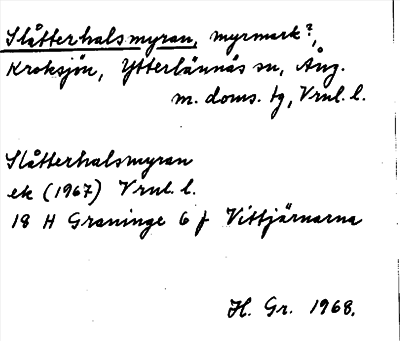 Slåtterhalsmyran, myrmark?,
Kroksjön, Ytterlännäs sn, Ång.
m. doms. tg, Vrnl. l.
Slåtterhalsmyran
ek (1967) Vrnl. l.
18 H Graninge 6 f Vittjärnarna
H. Gr. 1968.